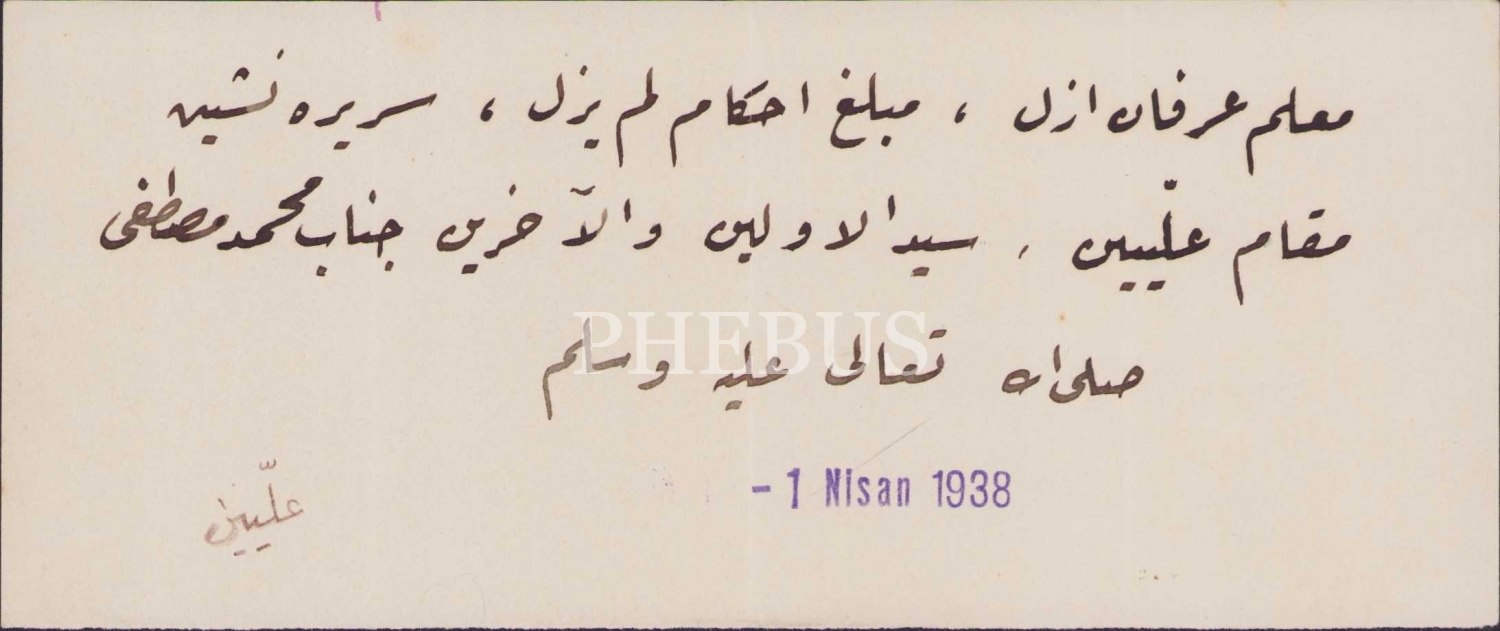 معلم عرفان ازل ، مبلغ احكام لم يزل ، سريره نشين
مقام علّيين ، سيد الاولين والآخرين جناب محمد مصطفى
صلى الله تعالى عليه وسلم
PHEBUS
- 1 Nisan 1938
علّيين